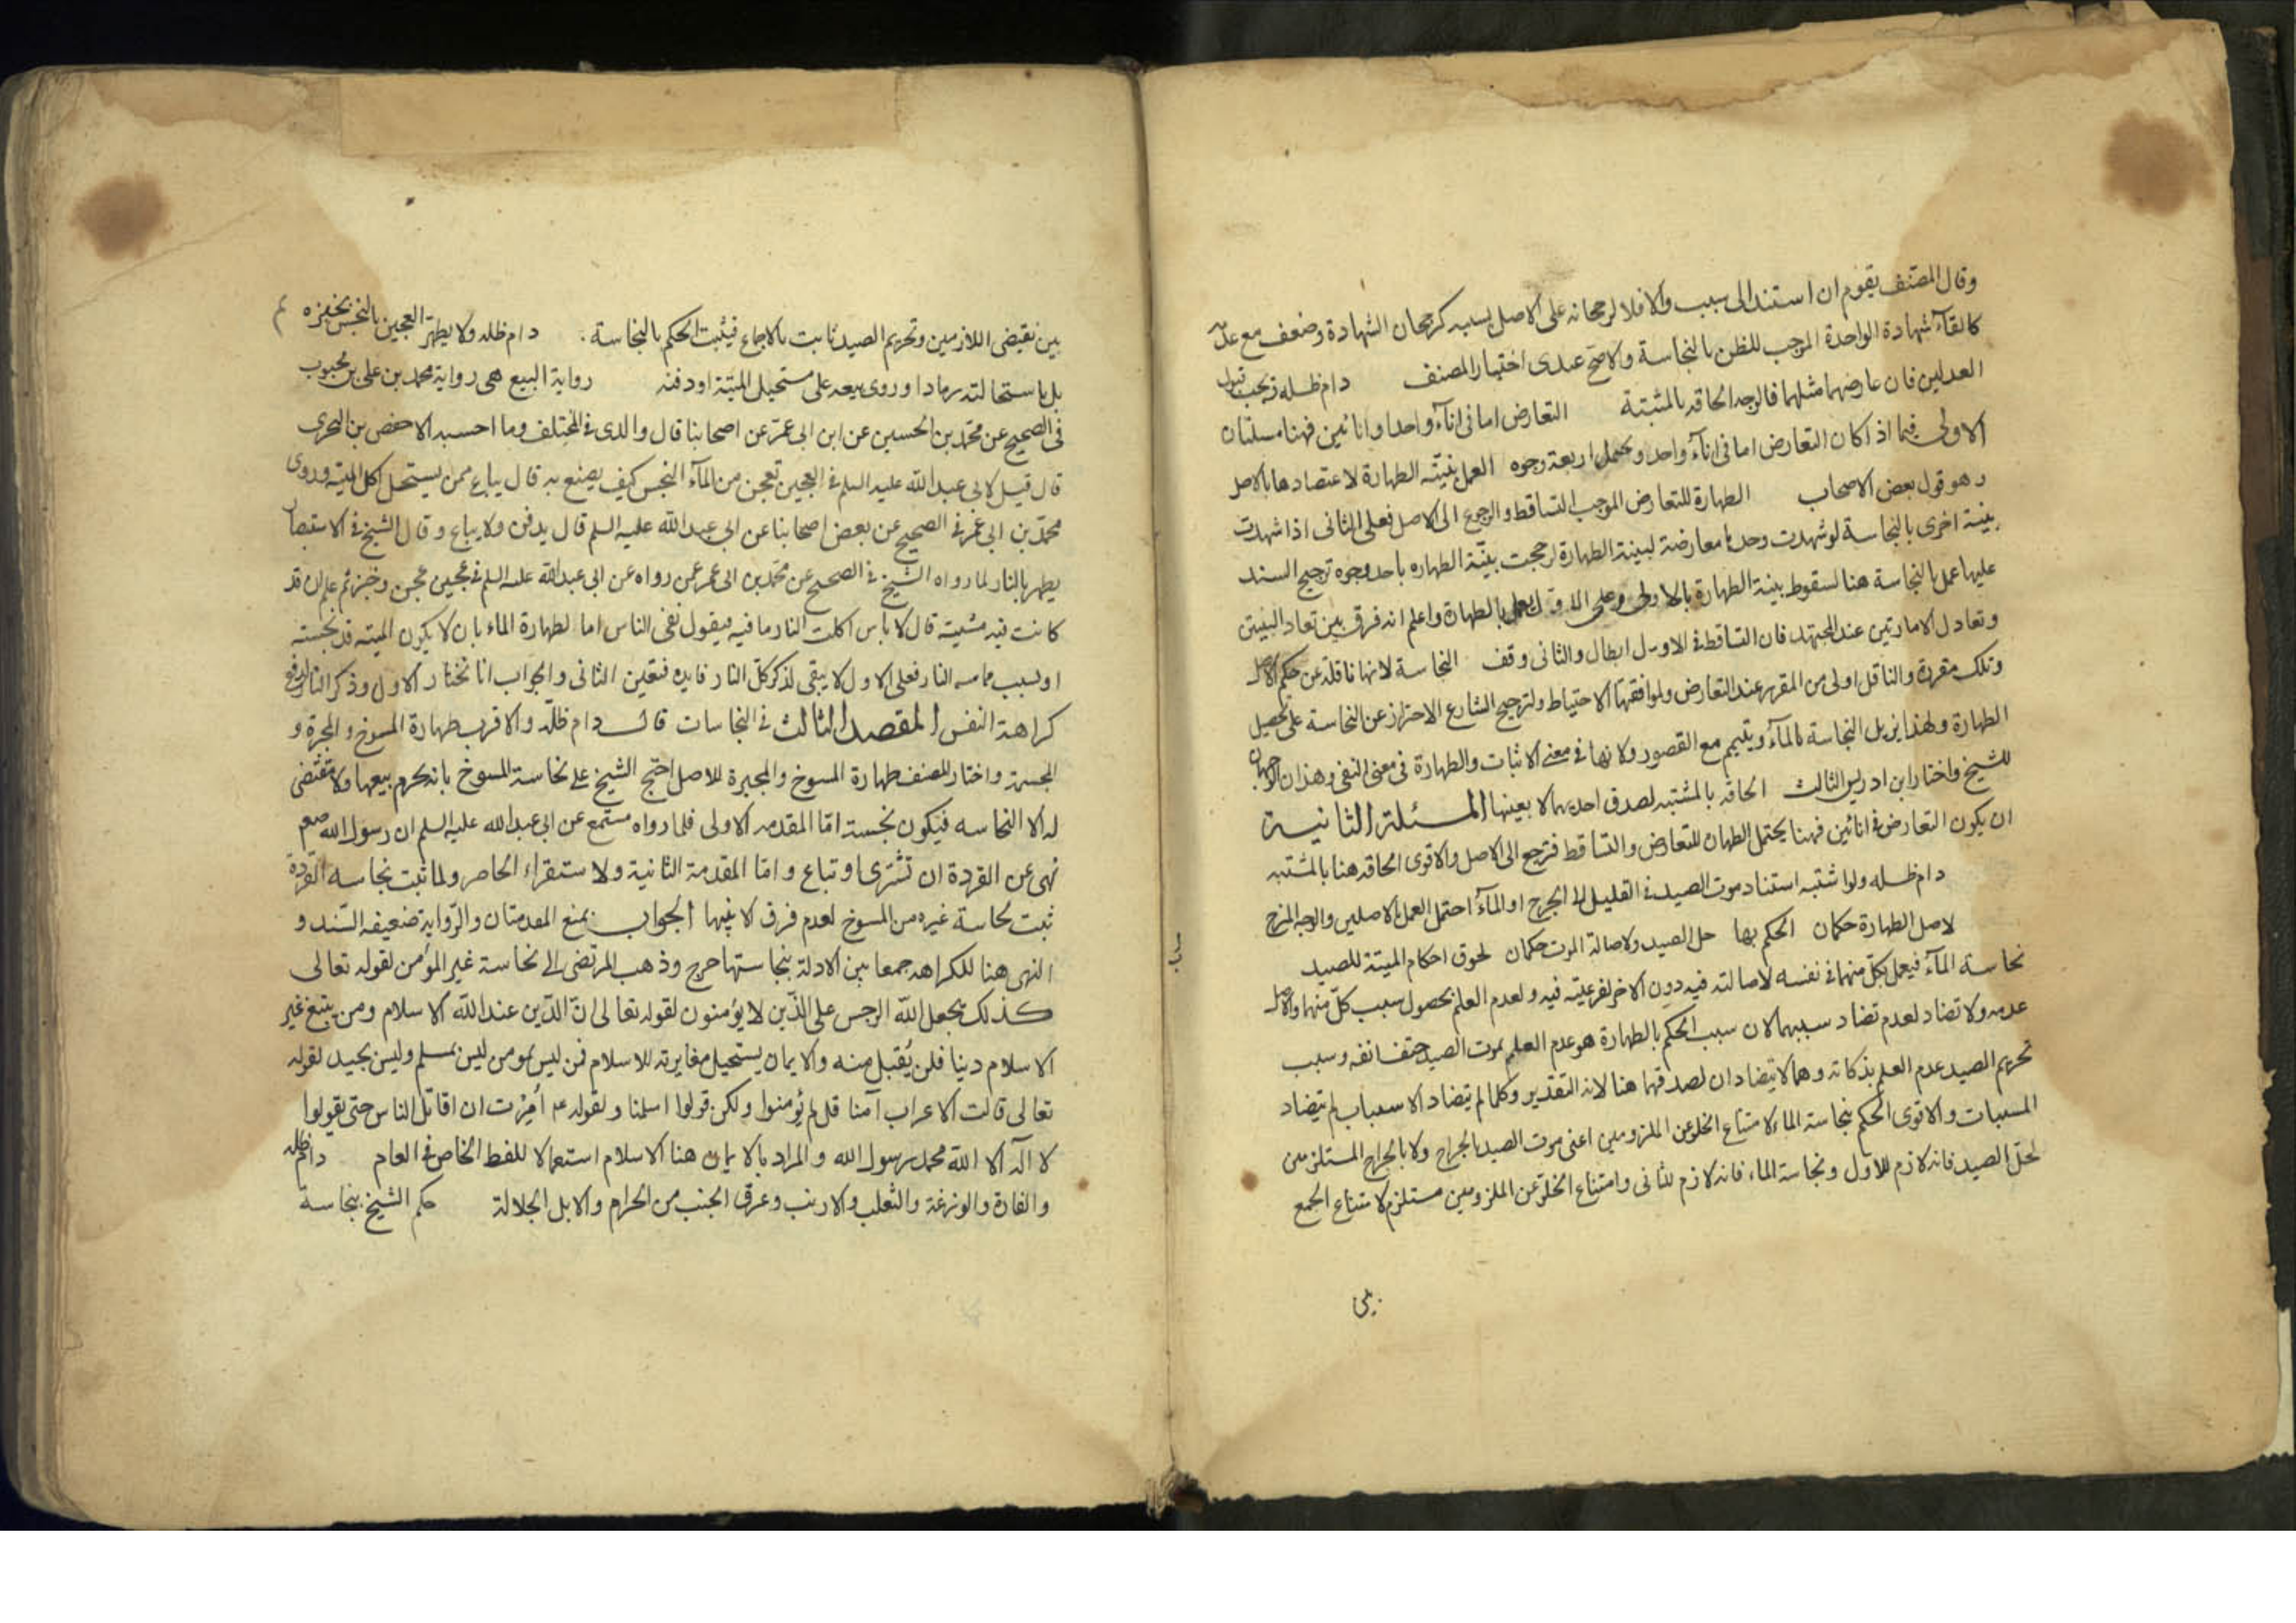 وقال المصنف يقوم ان استند الى سبب والا فلا لرجحانه على الاصل بسببه كرجحان الشهادة وضعف مع عدمه
كالقآء شهادة الواحدة الموجب للظن بالنجاسة والاصح عندى اختيار المصنف دام ظله ويجب قبول
العدلين فان عارضهما مثلهما فالوجه الحاقه بالمشتبة التعارض اما فى انآء واحد او انائين فهنا مسلتان
الاولى فيما اذا كان التعارض اما فى انآء واحد ويحتمل اربعة وجوه العمل ببينة الطهارة لاعتضادها بالاصل
وهو قول بعض الاصحاب الطهارة للتعارض الموجب التساقط والرجوع الى الاصل فعلى الثانى اذا شهدت
بينة اخرى بالنجاسة لو شهدت وحدها معارضة لبينة الطهارة لرجحت بينة الطهاره باحد وجوه ترجيح السند
عليها عمل بالنجاسة هنا لسقوط بينة الطهارة بالاولى وعلى الاول يعمل بالطهارة واعلم انه فرق بين تعاد البينتين
وتعادل الامارتين عند المجتهد فان التساقط فى الاول ابطال والثانى وقف النجاسة لانها ناقلة عن حكم الاصل
وتلك مقررة والناقل اولى من المقرر عند التعارض ولموافقتها الاحتياط ولترجيح الشارع الاحتراز عن النجاسة على تحصيل
الطهارة ولهذا يزيل النجاسة بالمآء ويتيمم مع القصور ولانها فى معنى الاثبات والطهارة فى معنى النفى وهذان الوجهان
للشيخ واختار ابن ادريس الثالث الحاقه بالمشتبه لصدق احديهما لا بعينها المسئلة الثانية
ان يكون التعارض فى انائين فهنا يحتمل الطهارة للتعارض والتساقط فترجع الى الاصل والاقوى الحاقه هنا بالمشتبه
دام ظله ولو اشتبه استناد موت الصيد فى القليل الى الجرح او المآء احتمل العمل بالاصلين والوجه المنع
لاصل الطهارة حكمان الحكم بها حل الصيد ولاصالة الموت حكمان لحوق احكام الميتة للصيد
نجاسة المآء فيعمل بكل منهما فى نفسه لاصالته فيه دون الاخر لفرعيته فيه ولعدم العلم بحصول سبب كل منهما والاصل
عدمه ولا تضاد لعدم تضاد سببهما لان سبب الحكم بالطهارة هو عدم العلم بموت الصيد حتف انفه وسبب
تحريم الصيد عدم العلم بذكاته وهما لا يتضادان لصدقهما هنا لانه التقدير وكلما لم يتضاد الاسباب لم يتضاد
المسببات والاقوى الحكم بنجاسة الماء لامتناع الخلو عن الملزومين اعنى موت الصيد بالجراح ولا بالجراح المستلزمين
لحل الصيد فانه لازم للاول ونجاسة الماء فانه لازم للثانى وامتناع الخلو عن الملزومين مستلزم لامتناع الجمع
بين نقيضى اللازمين وتحريم الصيد ثابت بالاجماع فيثبت الحكم بالنجاسة. دام ظله ولا يطهر العجين بالنجس بخبزه
بل باستحالته رمادا وروى بيعه على مستحيل الميتة او دفنه رواية البيع هى رواية محمد بن على بن محبوب
فى الصحيح عن محمد بن الحسين عن ابن ابى عمير عن اصحابنا قال والدى فى المختلف وما احسبه الا حفص بن البخترى
قال قيل لابى عبد الله عليه السلم فى العجين تعجن من المآء النجس كيف يصنع به قال يباع ممن يستحل اكل الميتة وروى
محمد بن ابى عمير فى الصحيح عن بعض اصحابنا عن ابى عبد الله عليه السلم قال يدفن ولا يباع وقال الشيخ فى الاستبصار
يطهر بالنار لما رواه الشيخ فى الصحيح عن محمد بن ابى عمير عمن رواه عن ابى عبد الله علىه السلم فى عجين عجن وخبز ثم علم ان قد
كانت فيه ميتة قال لا باس اكلت النار ما فيه فيقول نفى الباس اما لطهارة الماء بان لا يكون الميته قد نجسته
او بسبب مماسه النار فعلى الاول لا يبقى لذكر كل النار فايده فتعين الثانى والجواب انا نختار الاول وذكر النار لدفع
كراهة النفس المقصد الثالث فى النجاسات قال دام ظله والاقرب طهارة المسوخ والمجبرة و
المجسمة واختار المصنف طهارة المسوخ والمجبرة للاصل احتج الشيخ على نجاسة المسوخ بانه يحرم بيعها ولا مقتضى
له الا النجاسه فيكون نجسته اما المقدمه الاولى فلما رواه مسمع عن ابى عبد الله عليه السلم ان رسول الله صعم
نهى عن القردة ان تشترى او تباع واما المقدمة الثانية ولاستقراء الحاصر ولما ثبت نجاسه القردة
ثبت نجاسة غيره من المسوخ لعدم فرق لا بينها الجواب بمنع المقدمتان والرواية ضعيفه السند و
النهى هنا للكراهه جمعا بين الادلة بنجاستها حرج وذهب المرتضى الى نجاسة غير المؤمن لقوله تعالى
كذلك يجعل الله الرجس على الذين لا يؤمنون لقوله تعالى ان الدين عند الله الاسلام ومن يبتغ غير
الاسلام دينا فلن يقبل منه والايمان يستحيل مغايرته للاسلام فمن ليس بمومن ليس بمسلم وليس بجيد لقوله
تعالى قالت الاعراب آمنا قل لم يؤمنوا ولكن قولوا اسلمنا ولقوله عم امرت ان اقاتل الناس حتى يقولوا
لا اله الا الله محمد رسول الله والمراد بالايمان هنا الاسلام استعمالا للفظ الخاص فى العام دام ظله
والفارة والوزغة والثعلب والارنب وعرق الجنب من الحرام والابل الجلالة حكم الشيخ بنجاسة